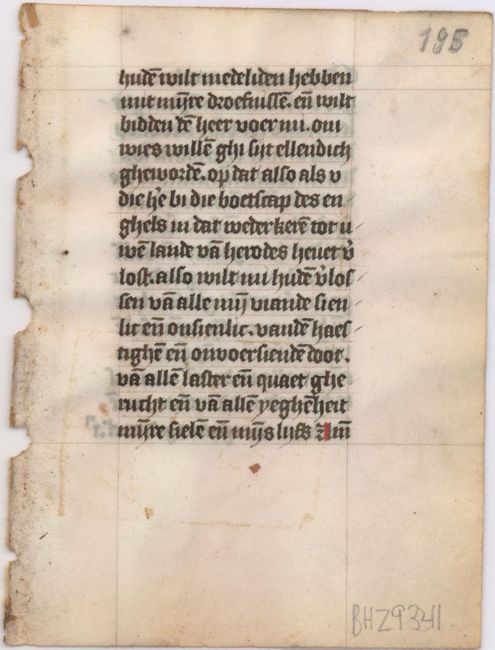 195
hudē wilt medeliden hebben
mit mijre droefnissē. eñ wilt
bidden dē heer voer mi. om
wies willē ghi sijt ellendich
ghewordē. op dat also als v
die hēe bi die boetscap des en
ghels in dat wederkerē tot u
wē lande vā herodes heuet v̄
lost. also wilt mi hudē v̄los
sen vā alle mij viande sien
lic eñ onsienlic. vandē haes
tighē eñ onvoersiendē doot.
vā allē laster eñ quaet ghe
rucht eñ vā allē yeghēheit
mijre sielē eñ mijs lijfs Amē
BHZ9341